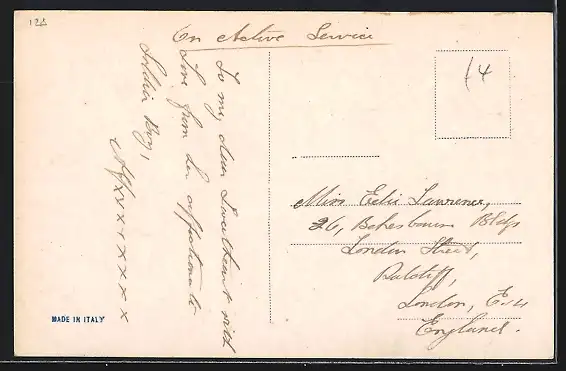 12A
On Active Service
To my dear Sweetheart with
Love from her affectionate
Soldier Boy,
Alf x x x x x x x x
14
Miss Edie Lawrence,
26, Bekesbourn Bldgs
London Street,
Ratcliff,
London, E.14
England.
MADE IN ITALY